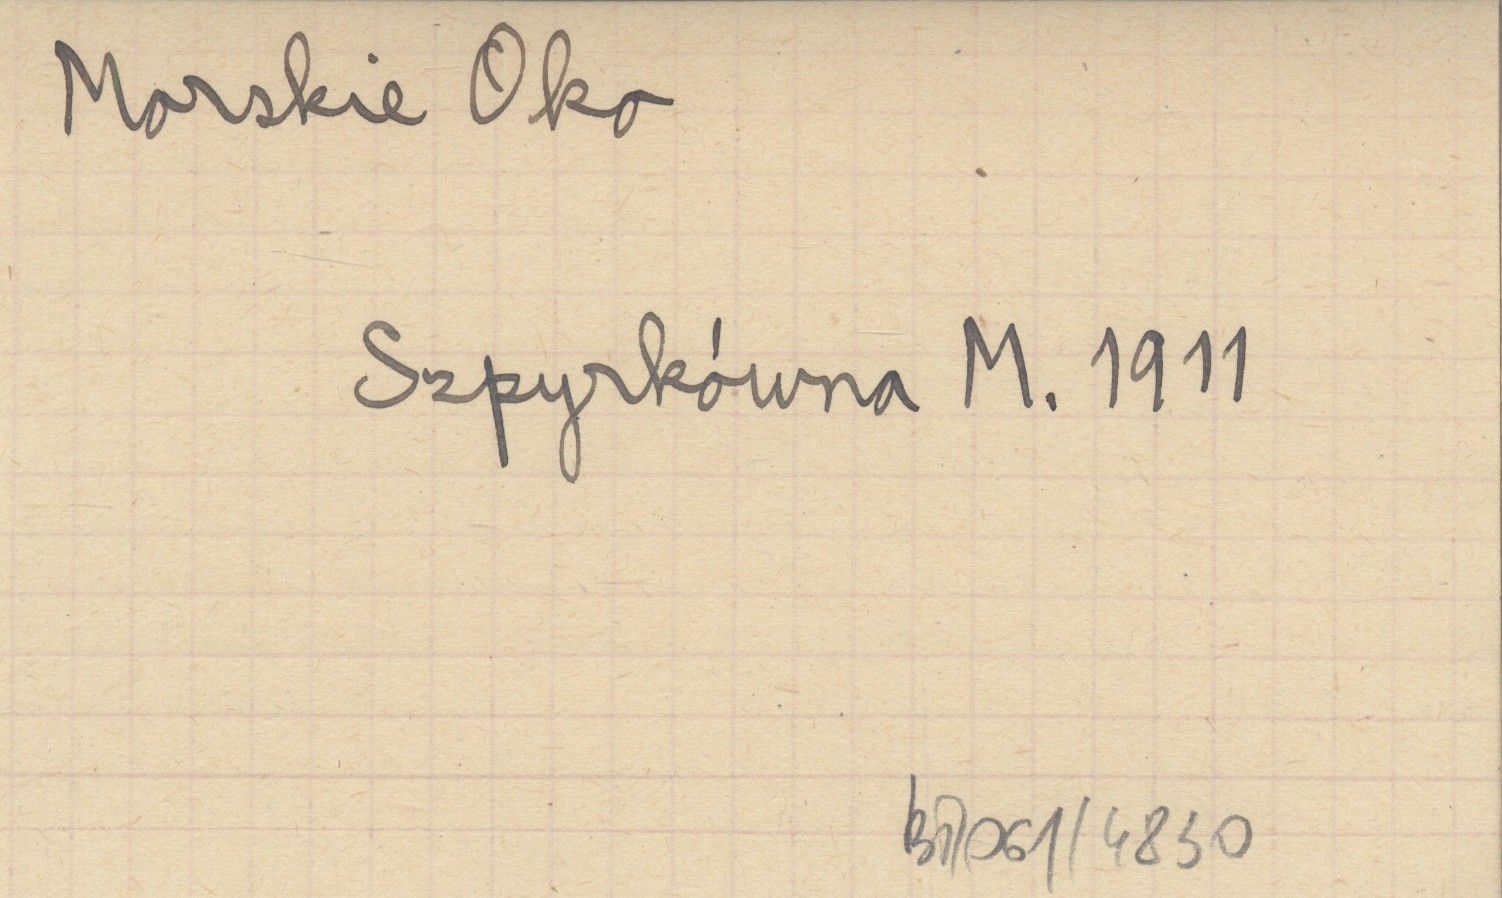 Morskie Oko
Szpyrkówna M. 1911
/4850